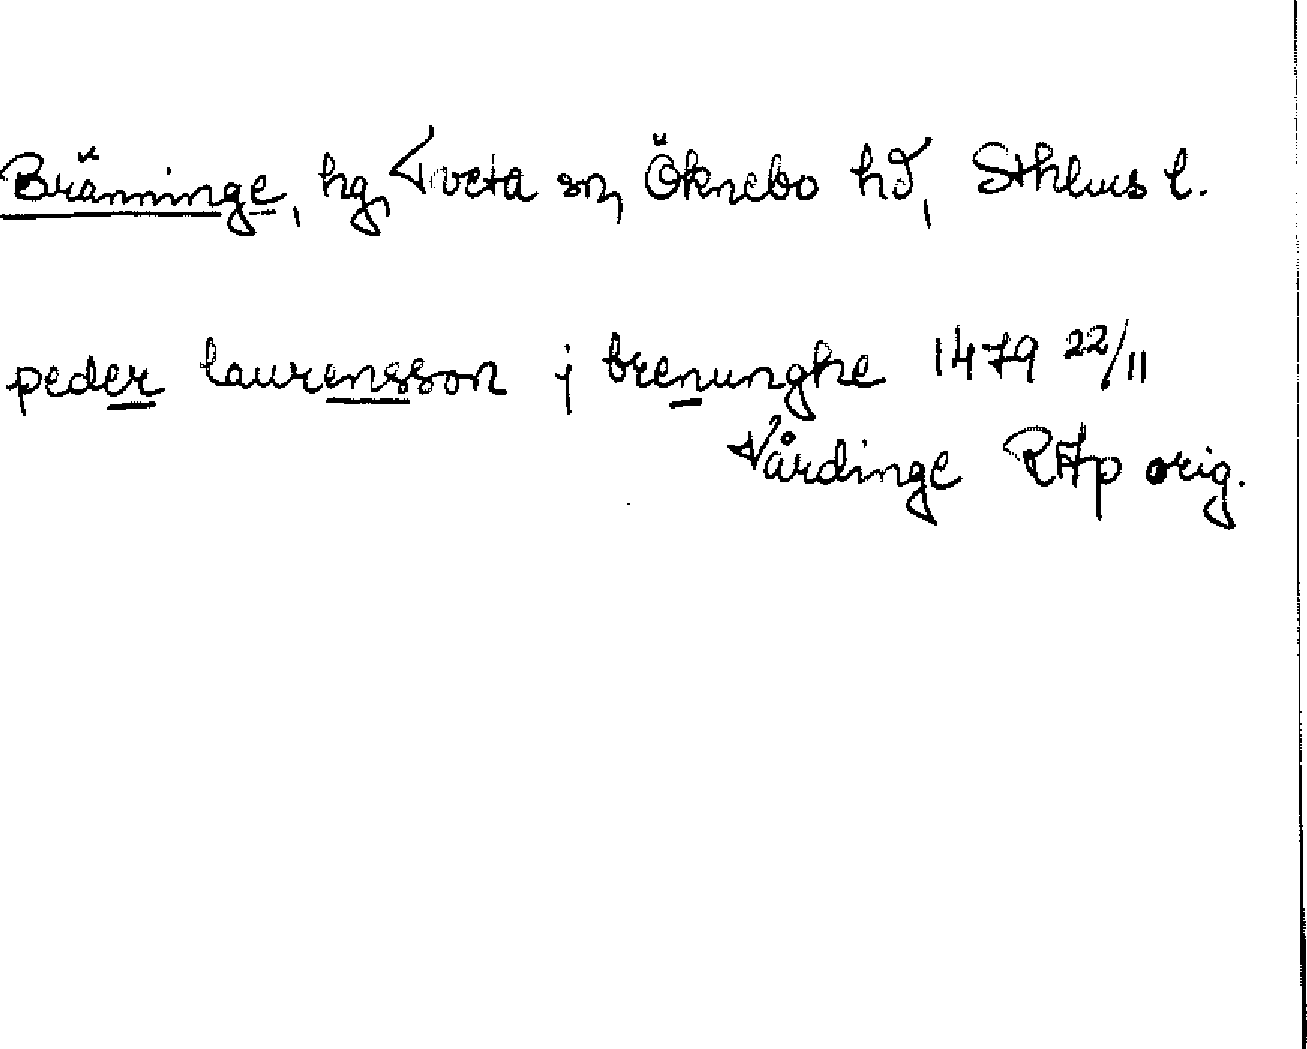 Bränninge, hg, Tveta sn, Öknebo hd, Sthlms l.
peder laurensson j brenunghe 1479 22/11
Vårdinge RAp orig.